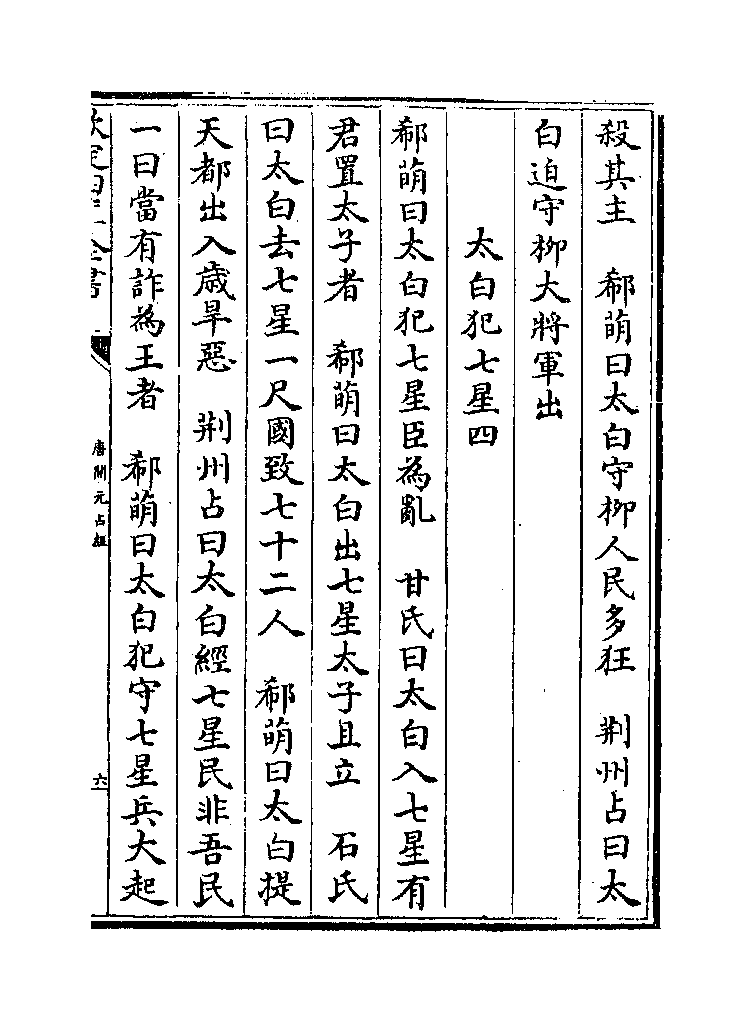 殺其主　郗萌曰太白守柳人民多狂　荆州占曰太
白迫守柳大將軍出
太白犯七星四
郗萌曰太白犯七星臣為亂　甘氏曰太白入七星有
君置太子者　郗萌曰太白出七星太子且立　石氏
曰太白去七星一尺國致七十二人　郗萌曰太白提
天都出入歲旱惡　荆州占曰太白經七星民非吾民
一曰當有詐為王者　郗萌曰太白犯守七星兵大起
欽定四庫全書
唐開元占經
六